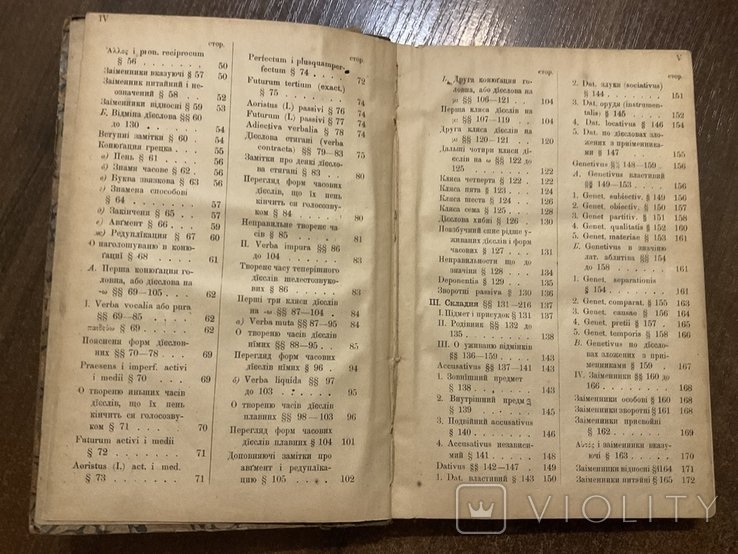 IV
стор.
Ἄλλος і pron. reciprocum
§ 56 . . . . . 50
Заіменники вказуючі § 57 50
Заіменник питайний і не-
означений § 58
Заіменники відносні § 59 53
Б. Відміна дієслова §§ 60
до 130 . . . . 54
Вступні замітки § 60 . 54
Конюґация грецка . . 55
а) Пень § 61 . . . 56
б) Знамя часове § 62 . 56
в) Буква звязкова § 63 56
г) Знамена способові
§ 64 . . . . 57
д) Закінченя § 65 . . 57
е) Авґмент § 66 . . 57
ж) Редуплїкация § 67 60
О наголошуваню в коню-
ґациї § 68 . . . . 61
А. Перша конюґация го-
ловна, або дієслова на
-ω §§ 69—105 . . . 62
I. Verba vocalia або pura
§§ 69—85 . . . . 62
παιδεύω § 69 . . . 62
Пояснєня форм дієслов-
них §§ 70—78 . . . 69
Praesens і imperf. activi
і medii § 70 . . . 69
О твореню иньших часів
дієслів, що їх пень
кінчить ся голосозву-
ком § 71 . . . . 70
Futurum activi і medii
§ 72 . . . . . 71
Aoristus (I.) act. і med.
§ 73 . . . . . 71
стор.
Perfectum і plusquamper-
fectum § 74 . . . . 72
Futurum tertium (exact.)
§ 75 . . . . . 74
Aoristus (I.) passivi § 76 74
Futurum (I.) passivi § 77 74
Adiectiva verbalia § 78 74
Дієслова стягані (verba
contracta) §§ 79—83 75
Замітки про деякі дієсло-
ва стягані § 83 . . 80
Перегляд форм часових
дієслів, що їх пень
кінчить ся голосозву-
ком § 84 . . . . 80
Неправильне творенє ча-
сів § 85 . . . . 81
II. Verba impura §§ 86
до 104 . . . . 83
Творенє часу теперішного
дієслів шелестозвуко-
вих § 86 . . . . 83
Перші три кляси дієслів
на -ω §§ 87—104 . . 84
а) Verba muta §§ 87—95 84
О твореню часів дієслів
нїмих §§ 88—95 . . 85
Перегляд форм часових
дієслів нїмих § 96 . 94
б) Verba liquida §§ 97
до 103 . . . . 95
О твореню часів дієслів
плавних §§ 98—103 96
Перегляд форм часових
дієслів плавних § 104 101
Доповняючі замітки про
авґмент і редуплїка-
цию § 105 . . . . 102
V
стор.
Б. Друга конюґация го-
ловна, дієслова на
-μι §§ 106—121 . . 104
Перша кляса дієслів на
-μι §§ 107—119 . . 104
Друга кляса дієслів на
-μι §§ 120—121 . . 120
Дальші чотири кляси ді-
єслів на -ω §§ 122 до 125
Кляса четверта § 122 . 122
Кляса пята § 123 . . 123
Кляса шеста § 124 . . 124
Кляса сема § 125 . . 128
Дієслова хибні § 126 . 130
Поазбучний спис рідше у-
живаних дієслів і форм
часових § 127 . . . 131
Неправильности що до
значіня § 128 . . . 134
Deponentia § 129 . . 135
Зворотні § 130 . . 136
III. Складня §§ 131—216 137
I. Підмет і присудок § 131 137
II. Родівник §§ 132 до
135 . . . . . . 138
III. О уживаню відмінків
§§ 136—159 . . . 143
Accusativus §§ 137—141 143
1. Зовнїшний предмет
§ 138 . . . . . 143
2. Внутрішний предмет
§ 139 . . . . . 145
3. Подвійний accusativus
§ 140 . . . . . 146
4. Accusativus независи-
мий § 141 . . . . 148
Dativus §§ 142—147 . 149
1. Dat. властивий § 143 150
стор.
2. Dat. злуки (sociativus)
§ 144 . . . . . 151
3. Dat. орудя (instrumen-
talis) § 145 . . . 152
4. Dat. locativus § 146 154
5. Dat. по дієсловах зло-
жених з приіменника-
ми § 147 . . . . 155
Genetivus §§ 148—159 . 156
А. Genetivus властивий
§§ 149—153 . . . 156
1. Genet. subiectiv. § 149 156
2. Genet. obiectiv. § 150 157
3. Genet partitiv. § 151 158
4. Genet. qualitatis § 152 160
5. Genet. materiae § 153 161
Б. Genetivus в значіню
лат. аблятіва §§ 154
до 158 . . . . 161
1. Genet. separationis
§ 154 . . . . . 161
2. Genet. comparat. § 155 163
3. Genet. causae § 156 164
4. Genet. pretii § 157 165
5. Genet. temporis § 158 168
В. Genetivus по дієсло-
вах зложених з при-
іменниками § 159 . 167
IV. Заіменники §§ 160 до
166 . . . . . . 168
Заіменники особові § 160 168
Заіменники зворотні § 161 168
Заіменники присвойні
§ 162 . . . . . 169
Αὐτός і заіменники вказу-
ючі § 163 . . . . 170
Заіменники відносні § 164 171
Заіменники питайні § 165 172
VIOLITY